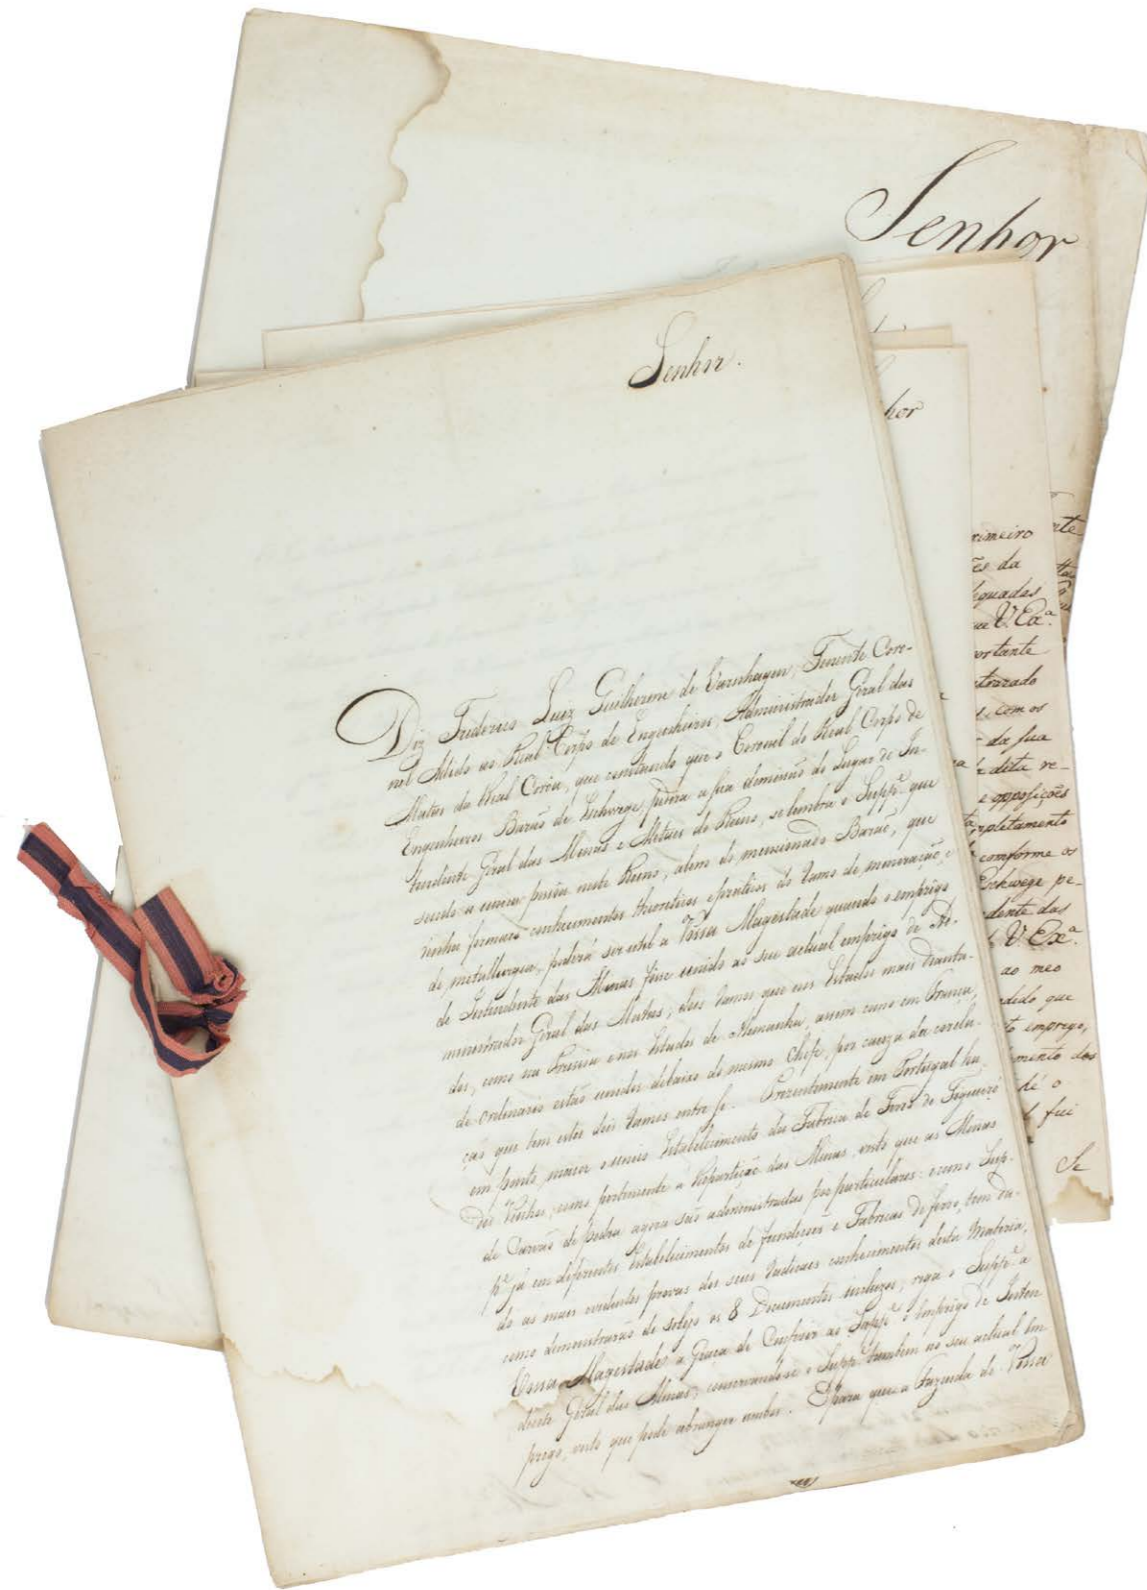 Senhor
Senhor.
hor
Diz Frederico Luiz Guilherme de Varnhagen, Tenente Coro-
nel Addido ao Real Corpo de Engenheiros, Administrador Geral das
Matas da Real Coroa, que constando que o Coronel do Real Corpo de
Engenheiros Barão de Eschwege, pedira a sua demissão do Lugar de In-
tendente Geral das Minas e Metaes do Reino, se lembra o Suppe. que
sendo a unica pessoa neste Reino, alem do mencionado Barão, que
tenha formaes conhecimentos theoreticos e praticos do ramo de mineração, e
de metallurgia, poderá ser util a Vossa Magestade quando o emprego
de Intendente das Minas fosse unido ao seu actual emprego de Ad-
ministrador Geral das Matas, dois ramos que nos Estados mais dianta-
dos, como na Prussia e nos Estados de Alemanha, assim como em França,
de ordinario estão unidos debaixo do mesmo Chefe, por cauza da corela-
ção que tem estes dois ramos entre si. Prezentemente em Portugal ha
em ponto maior o unico Estabelecimento da Fabrica de Ferro de Figueiró
dos Vinhos, como pertencente á Repartição das Minas, visto que as Minas
de Carvão de pedra agora são administradas por particulares: e como o Sup-
pe. já em differentes Estabelecimentos de fundição e Fabricas de ferro, tem da-
do as mais evidentes provas dos seus radicaes conhecimentos desta Materia,
como demonstrarão de sobejo os 8 Documentos incluzos; roga o Suppe. a
Vossa Magestade a Graça de Conferir ao Suppe. o Emprego de Inten-
dente Geral das Minas, conservando-se o Suppe. tambem no seu actual Em-
prego, visto que pode abranger ambos. E para que a Fazenda de Vossa
rimeiro
ões da
equadas
V. Exa.
ortante
atrazado
da sua
dita re-
e opposições
completamente
conforme os
Eschwege pe-
dente das
V. Exa.
ao meo
edido que
to emprego,
mento dos
dê o
fui
Se
nte